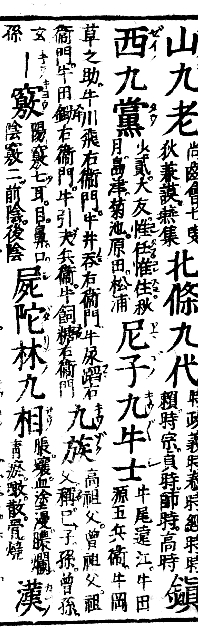 山九老
尚齒會七叟
狄兼謨無集
北條九代
時政義時泰時經時
頼時宗貞時師時高時
鎮
西九黨
少貳大友惟任惟住秋
月島津菊池原田松浦
尼子九牛士
牛尾遠江牛田
源五兵衛牛岡
草之助牛川飛右衛門牛井呑右衛門牛尿踏右
衛門牛田鋤右衛門牛引夫兵衛牛飼糠右衛門
九族
高祖父曾祖父祖
父稱己子孫曾孫
玄
孫
竅
陽竅七耳目鼻口
陰竅二前陰後陰
屍陀林九相
脹壞血塗漫膿爛
青瘀噉散骨燒
漢